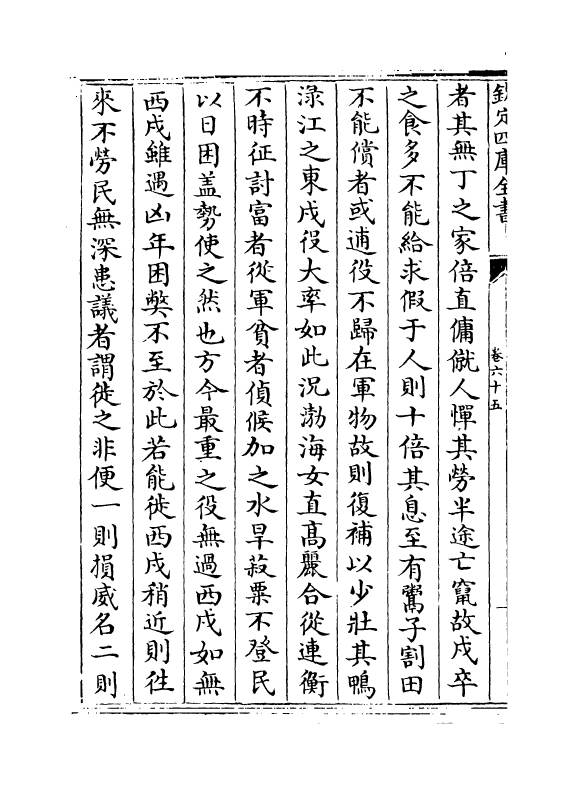 欽定四庫全書
卷六十五
者其無丁之家倍直傭僦人憚其勞半途亡竄故戍卒
之食多不能給求假于人則十倍其息至有鬻子割田
不能償者或逋役不歸在軍物故則復補以少壯其鴨
淥江之東戍役大率如此況渤海女直高麗合從連衡
不時征討富者從軍貧者偵候加之水旱菽粟不登民
以日困盖勢使之然也方今最重之役無過西戍如無
西戍雖遇凶年困弊不至於此若能徙西戍稍近則往
來不勞民無深患議者謂徙之非便一則損威名二則